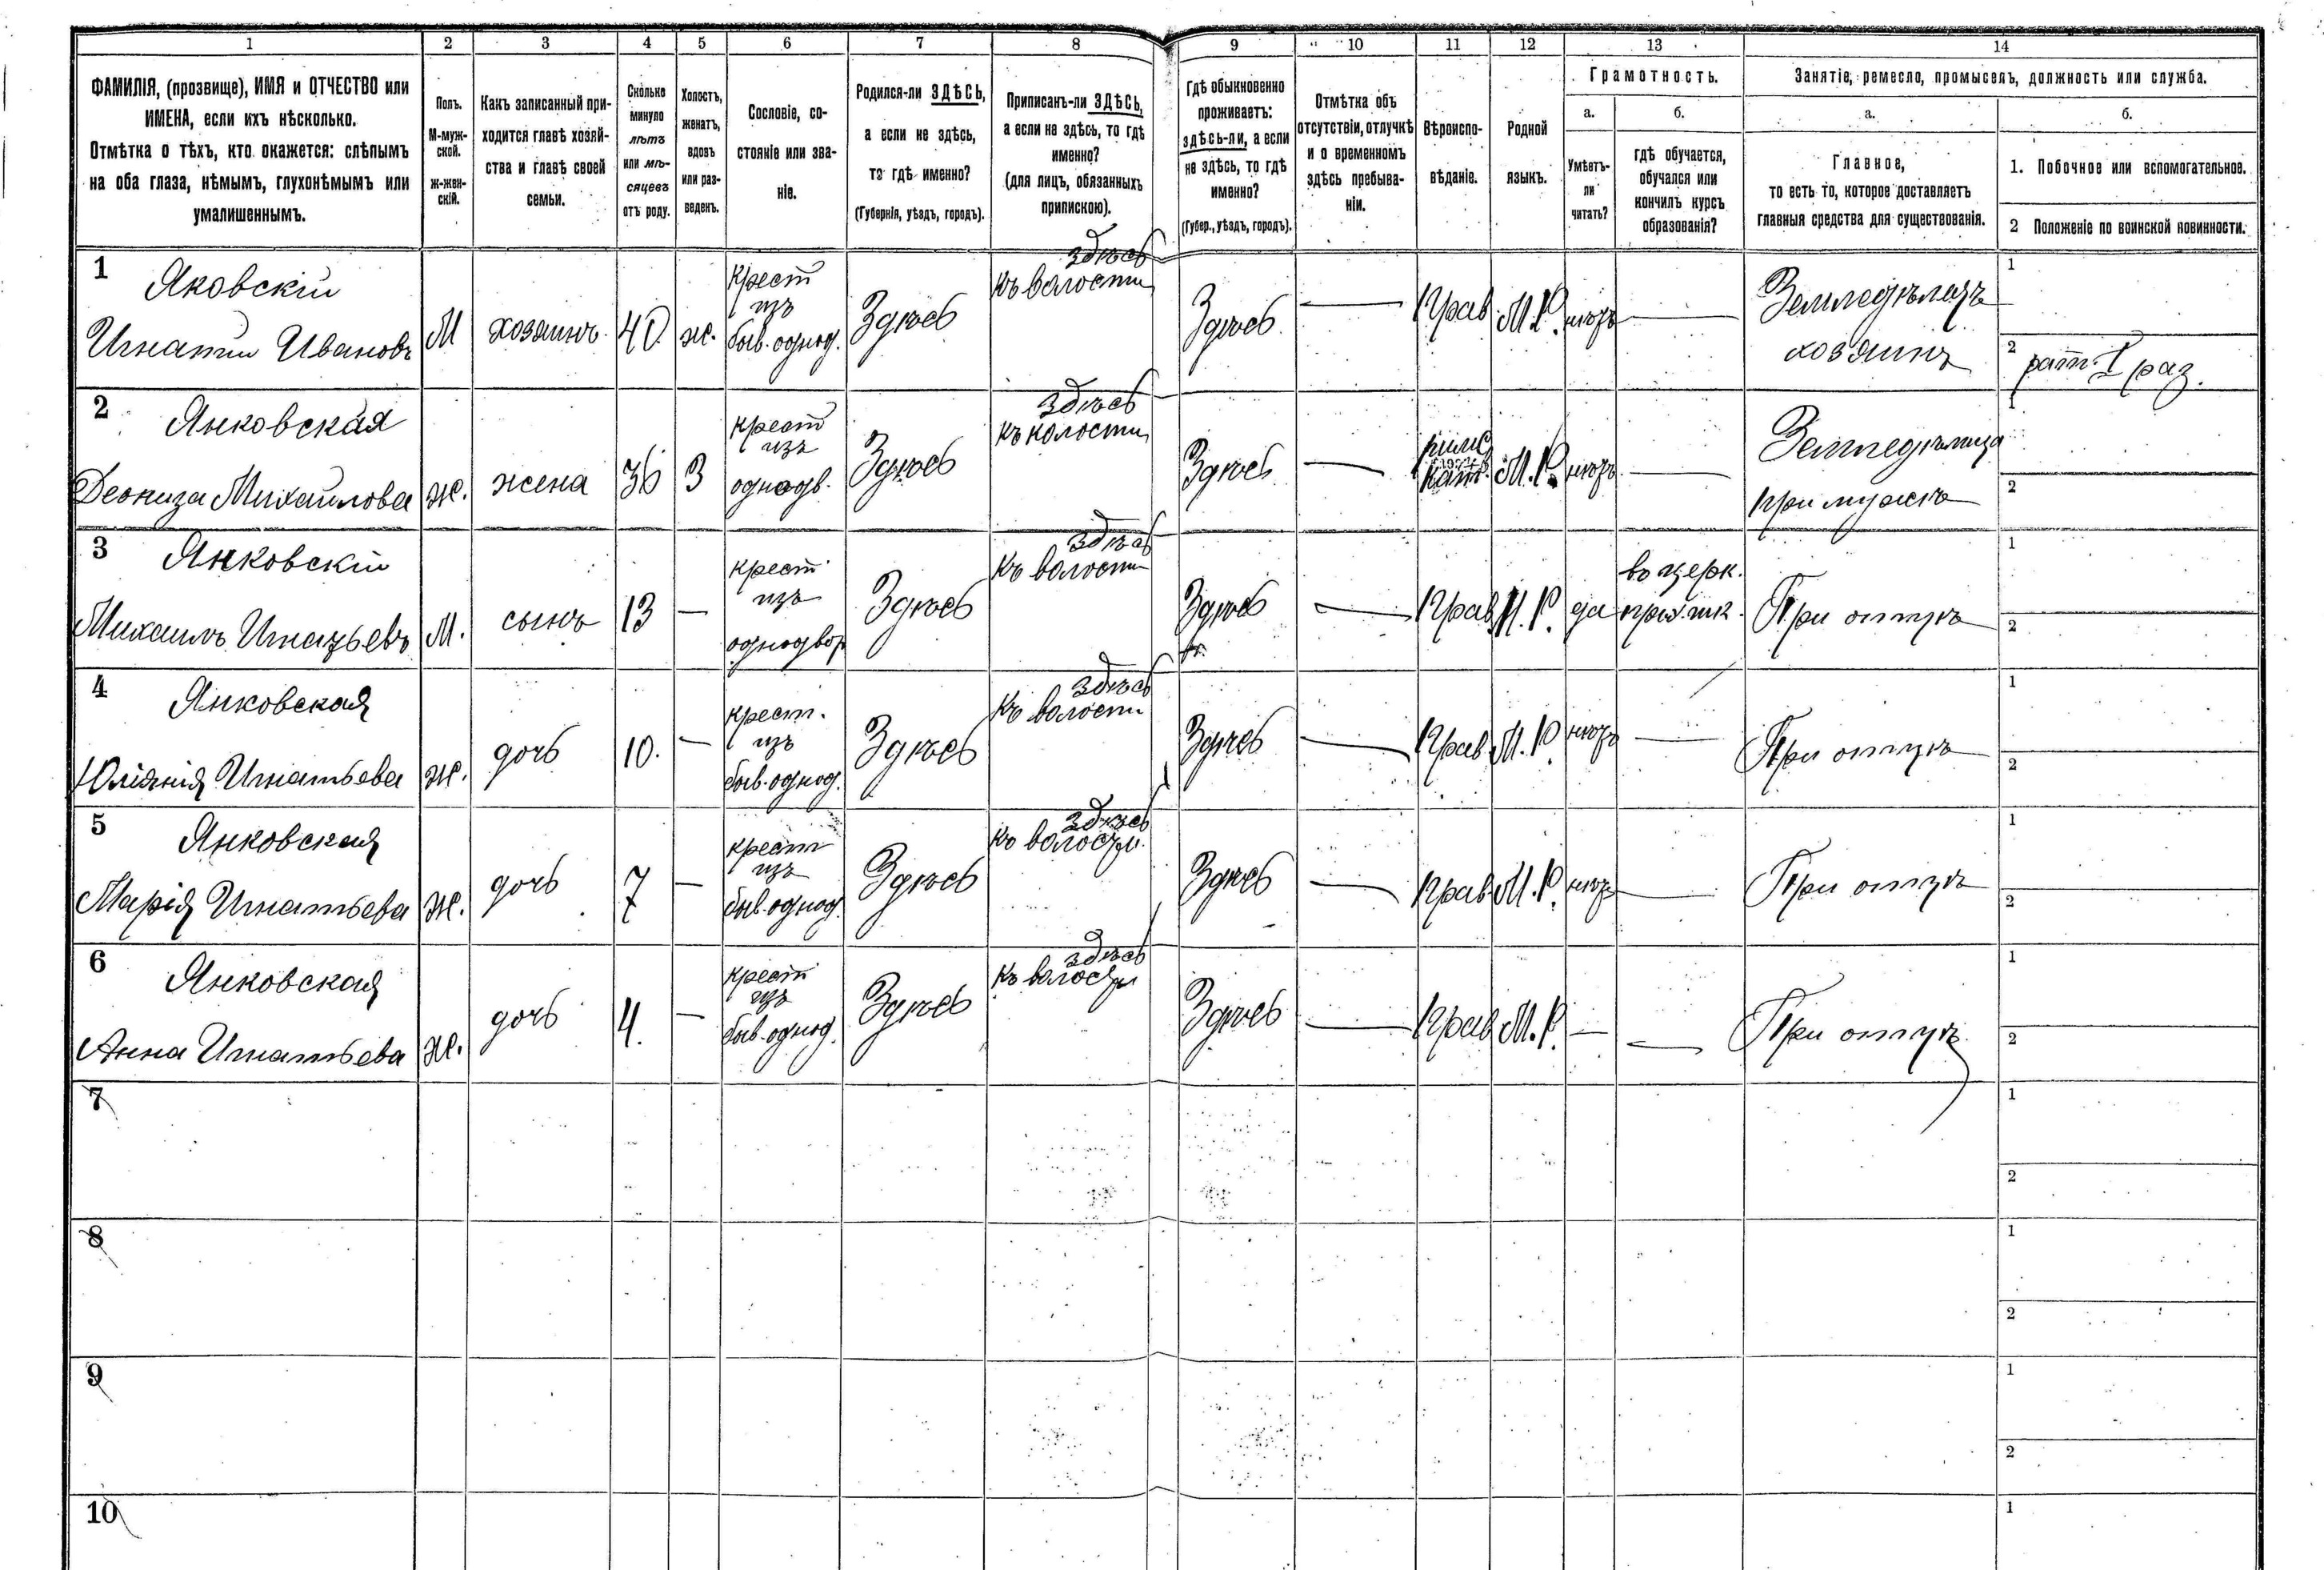 1 2 3 4 5 6 7 8 9 10 11 12 13 14
ФАМИЛІЯ, (прозвище), ИМЯ и ОТЧЕСТВО или
ИМЕНА, если ихъ нѣсколько.
Отмѣтка о тѣхъ, кто окажется: слѣпымъ
на оба глаза, нѣмымъ, глухонѣмымъ или
умалишеннымъ.
Полъ.
М-муж-
ской.
ж-жен-
скій.
Какъ записанный при-
ходится главѣ хозяй-
ства и главѣ своей
семьи.
Сколько
минуло
лѣтъ
или мѣ-
сяцевъ
отъ роду.
Холостъ,
женатъ,
вдовъ
или раз-
веденъ.
Сословіе, со-
стояніе или зва-
ніе.
Родился-ли ЗДѢСЬ,
а если не здѣсь,
то гдѣ именно?
(Губернія, уѣздъ, городъ).
Приписанъ-ли ЗДѢСЬ,
а если не здѣсь, то гдѣ
именно?
(для лицъ, обязанныхъ
припискою).
Гдѣ обыкновенно
проживаетъ:
здѣсь-ли, а если
не здѣсь, то гдѣ
именно?
(Губер., уѣздъ, городъ).
Отмѣтка объ
отсутствіи, отлучкѣ
и о временномъ
здѣсь пребыва-
ніи.
Вѣроиспо-
вѣданіе.
Родной
языкъ.
Грамотность.
а.
Умѣетъ-
ли
читать?
б.
гдѣ обучается,
обучался или
кончилъ курсъ
образованія?
Занятіе, ремесло, промыселъ, должность или служба.
а.
Главное,
то есть то, которое доставляетъ
главныя средства для существованія.
б.
1. Побочное или вспомогательное.
2 Положеніе по воинской повинности.
1
Яковскій
Игнатий Ивановъ
М
хозяинъ
40
ж.
Крест
изъ
быв. однод.
Здѣсь
здѣсь
къ волости
Здѣсь
—
Прав
М.Р.
нѣтъ
—
Земледѣлецъ
хозяинъ
1
2
рат. I раз.
2
Янковская
Михайлова
ж.
жена
36
З
крест
изъ
одноодв.
Здѣсь
здѣсь
къ волости
Здѣсь
—
римс
кат.
М.Р.
нѣтъ
—
Земледѣлица
при мужѣ
1
2
3
Янковскій
Михаилъ Игнатьевъ
М.
сынъ
13
—
крест
изъ
однодвор
Здѣсь
здѣсь
къ волости
Здѣсь
—
Прав
М.Р.
да
въ церк.
прих. шк.
При отцѣ
1
2
4
Янковская
Юліянія Игнатьева
ж.
дочь
10.
—
крест.
изъ
быв. однод.
Здѣсь
здѣсь
къ волости
Здѣсь
—
Прав
М.Р.
нѣтъ
—
При отцѣ
1
2
5
Янковская
Марія Игнатьева
ж.
дочь
7
—
крест
изъ
быв. однод.
Здѣсь
здѣсь
къ волости.
Здѣсь
—
Прав
М.Р.
нѣтъ
—
При отцѣ
1
2
6
Янковская
Анна Игнатьева
ж.
дочь
4.
—
крест
изъ
быв. однод.
Здѣсь
здѣсь
къ волости
Здѣсь
—
Прав
М.Р.
—
—
При отцѣ
1
2
7
1
2
8
1
2
9
1
2
10
1